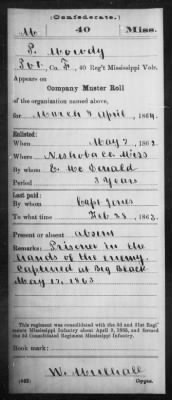 (Confederate.)
M 40 Miss.
P. Moody
Pvt, Co. F, 40 Reg't Mississippi Vols.
Appears on
Company Muster Roll
of the organization named above,
for March & April, 1864.
Enlisted:
When May 7, 1862.
Where Neshoba Co. Miss
By whom E. McDonald
Period 3 Years
Last paid:
By whom Capt Jones
To what time Feb 28, 1863.
Present or absent absent
Remarks: Prisoner in the
hands of the enemy.
Captured at Big Black
May 17, 1863
This regiment was consolidated with the 3d and 31st Regi-
ments Mississippi Infantry about April 9, 1865, and formed
the 3d Consolidated Regiment Mississippi Infantry.
Book mark:
W. Mulhall
(642) Copyist.